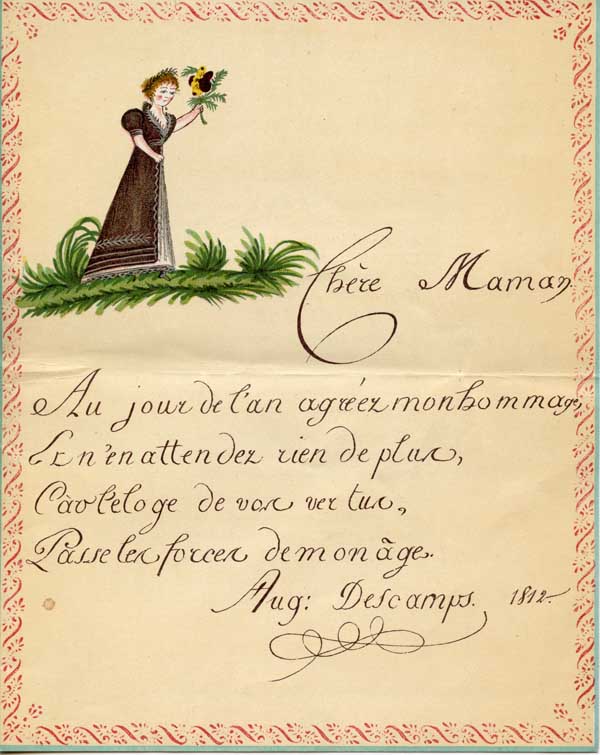 Chère Maman.
Au jour de l'an agréez mon hommage,
Et n'en attendez rien de plus,
Car l'éloge de vos vertus,
Passe les forces de mon âge.
Aug: Descamps. 1812.